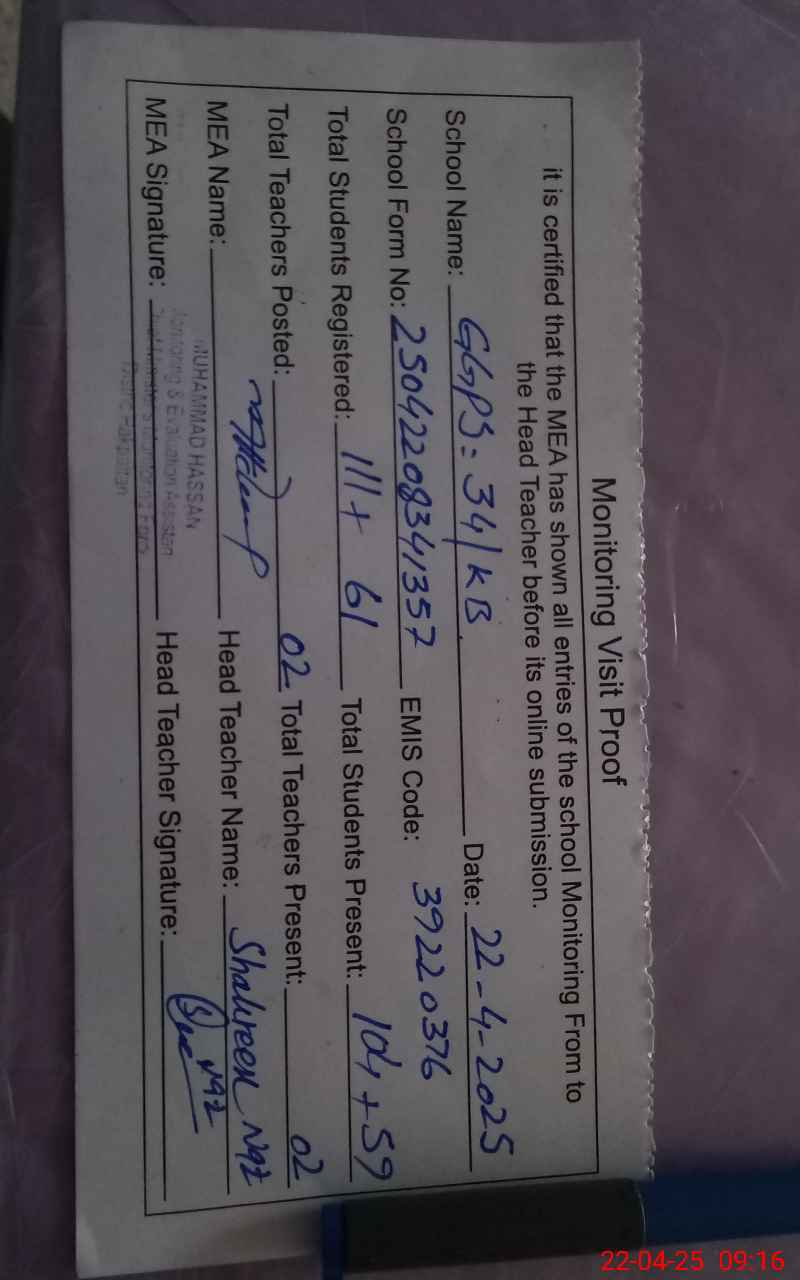 Monitoring Visit Proof
it is certified that the MEA has shown all entries of the school Monitoring From to
the Head Teacher before its online submission.
School Name: GGPS = 34/KB. Date: 22-4-2025
School Form No: 25042208341357 EMIS Code: 39220376
Total Students Registered: 111 + 61 Total Students Present: 104 + 59
Total Teachers Posted: 02 Total Teachers Present: 02
MEA Name: Head Teacher Name: Shahreen Naz
MUHAMMAD HASSAN
Monitoring & Evaluation Assistan
MEA Signature: Head Teacher Signature: Naz
Pakpattan
22-04-25 09:16